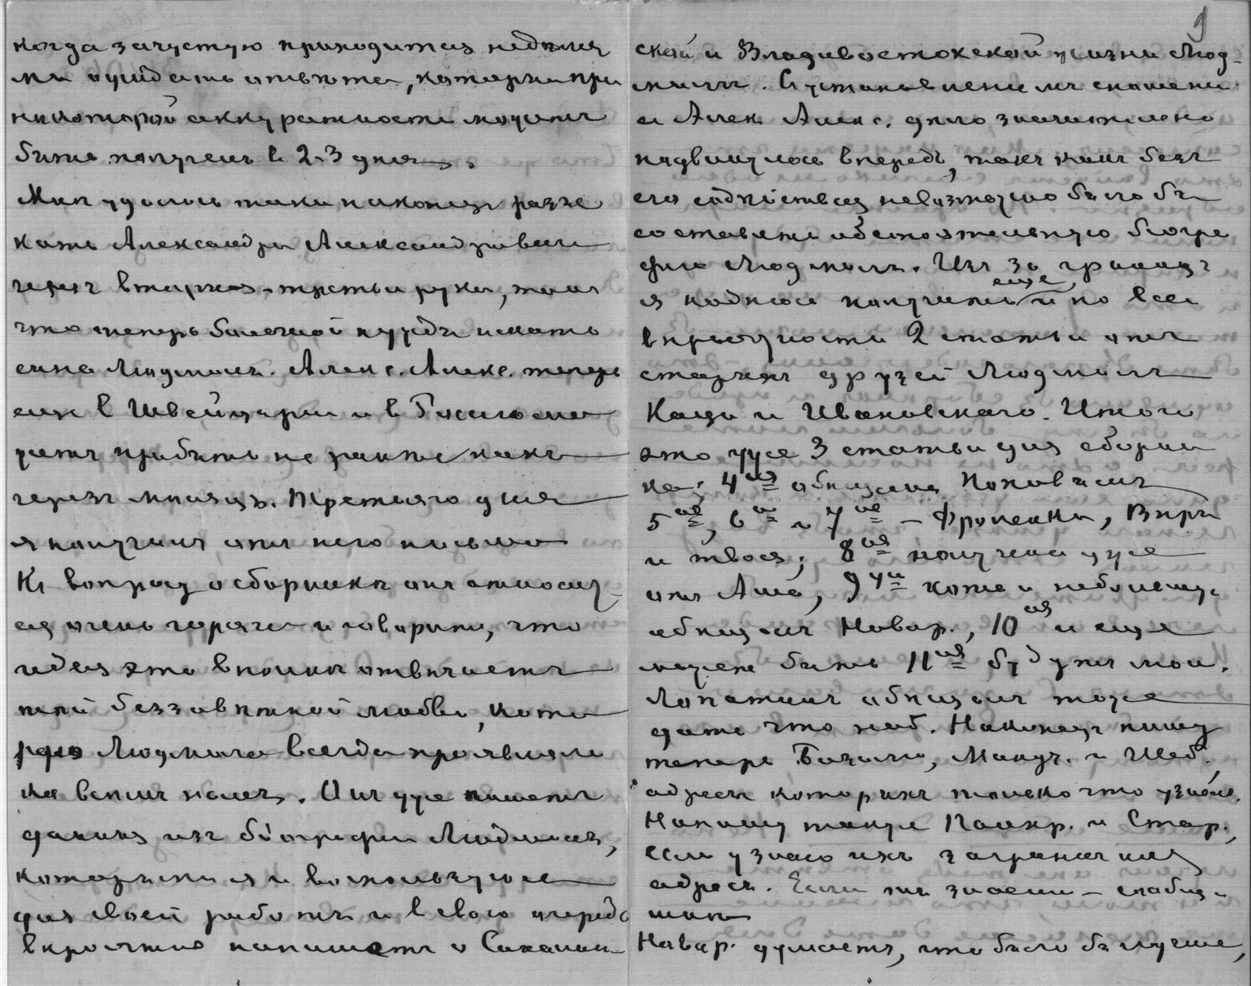 когда зачастую приходится недѣля
ми ожидать отвѣта, который при
нѣкоторой аккуратности можетъ
быть полученъ в 2-3 дня.
Мнѣ удалось таки наконецъ разыс
кать Александра Александровича
через вторыя-третьи руки, такъ
что теперь большой нужды искать
сына Людмилы. Алекс. Алекс. теперь
еще в Швейцаріи и в Россію мо
жетъ прибыть не раньше какъ
черезъ мѣсяцъ. Третьяго дня
я получилъ отъ него письмо
Къ вопросу о сборникѣ онъ относит
ся очень горячо и говоритъ, что
идея эта вполнѣ отвѣчаетъ
той беззавѣтной любви, кото
рую Людмила всегда проявляла
ко всѣмъ намъ. Онъ уже пишетъ
данныя изъ біографіи Людмилы,
которыми я и воспользуюсь
для своей работы и в свою очередь
вкратцѣ напишетъ о Сахалин-
9
ской и Владивостокской жизни Люд-
милы. С установленіемъ сношеній
с Алек. Алекс. дѣло значительно
подвинулось впередъ, такъ какъ безъ
его содѣйствія невозможно было бы
составить обстоятельную біогра
фію Людмилы. Изъ за границы
я надняхъ получилъ еще и по всей
вѣроятности 2 статьи отъ
старыхъ друзей Людмилы
Каца и Ивановскаго. Итого
это уже 3 статьи для сборни
ка; 4ая обѣщана Поповымъ
5ая, 6ая и 7ая – Фроленко, Вѣры
и твоя; 8ая получена уже
отъ Аш., 9ую тоже и небольшую
обѣщалъ Новор., 10ая и еще
можетъ быть 11ая будутъ мои.
Лопатинъ обѣщалъ тоже
дать что ниб. Наконецъ пишу
теперь Бычкову, Мануч. и Шеб.,
адреса которыхъ только что узналъ.
Напишу также Панкр. и Стар.,
если узнаю ихъ заграничный
адресъ. Если ты знаешь – сообщи
мнѣ
Новор. думаетъ, что было бы лучше,